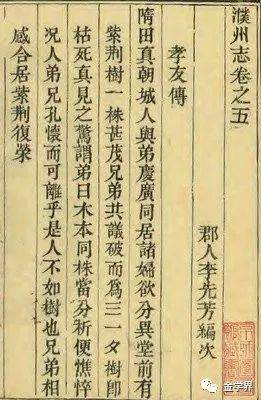 濮州志卷之五
郡人李先芳編次
孝友傳
隋田真朝城人與弟慶廣同居諸婦欲分異堂前有
紫荆樹一株甚茂兄弟共議破而爲三一夕樹卽
枯死真見之驚謂弟曰木本同株當分析便憔悴
况人弟兄孔懷而可離乎是人不如樹也兄弟相
感合居紫荆復榮
金学界